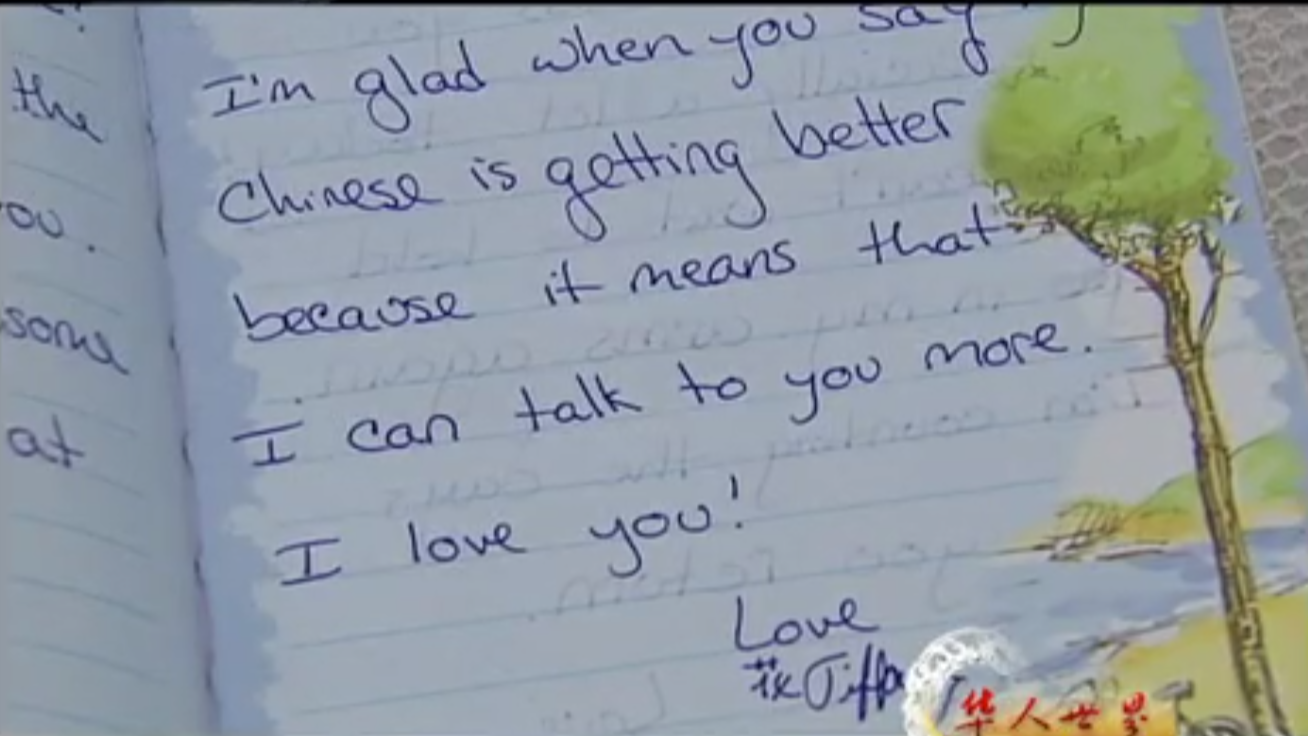 the
ou.
some
at
I'm glad when you say
Chinese is getting better
because it means that
I can talk to you more.
I love you!
Love
华人世界